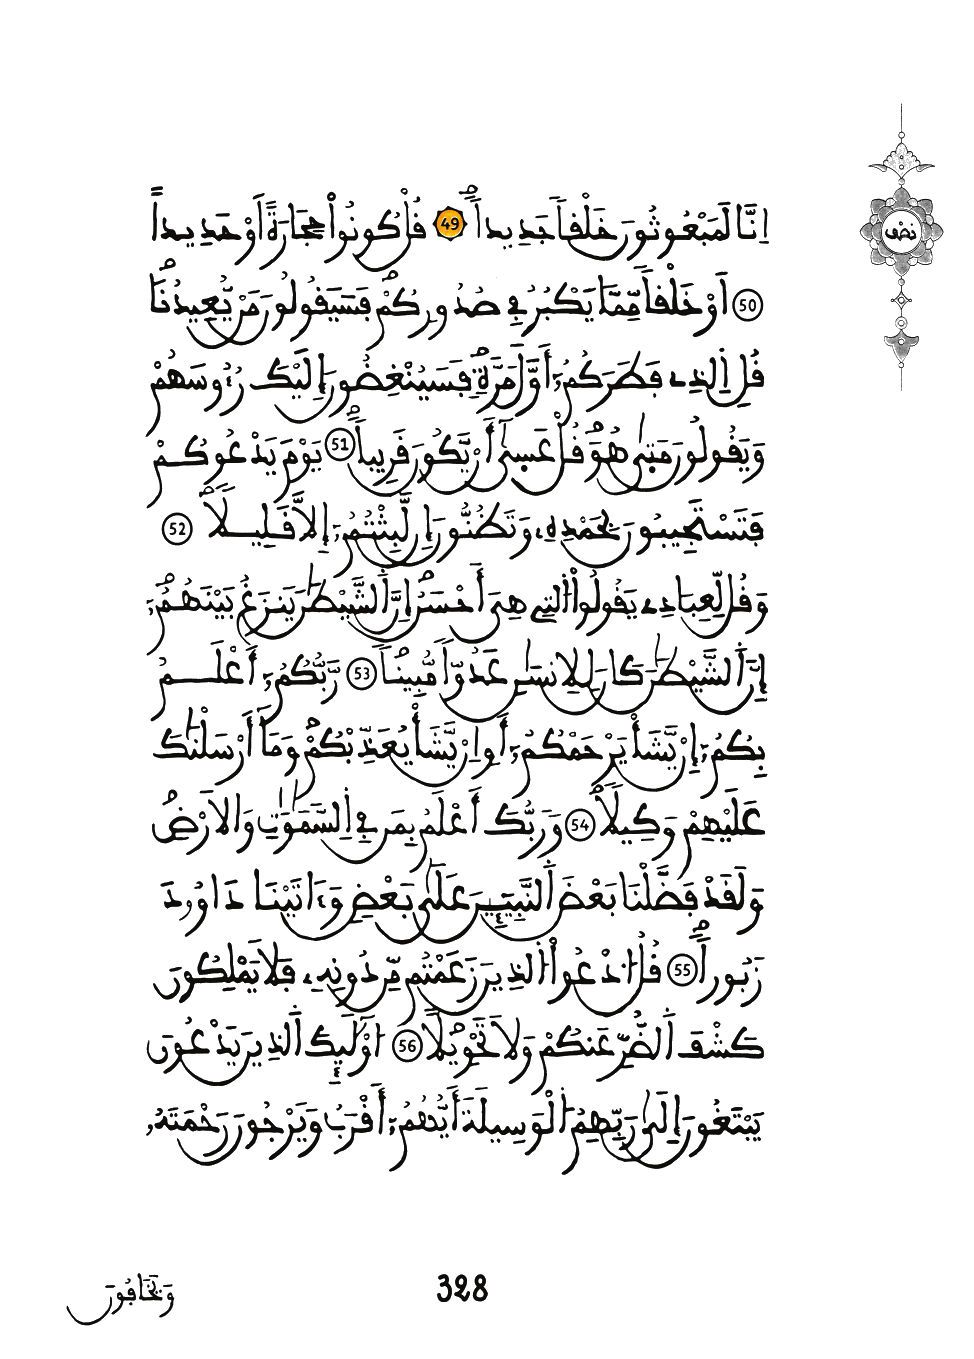 اِنَّا لَمَبْعُوثُونَ خَلْقاً جَدِيداًۖ 49 قُلْ كُونُواْ حِجَارَةً أَوْ حَدِيداً
نصف
50 أَوْ خَلْقاً مِّمَّا يَكْبُرُ فِے صُدُورِكُمْۖ فَسَيَقُولُونَ مَنْ يُّعِيدُنَاۖ
قُلِ اِلذِے فَطَرَكُمُۥٓ أَوَّلَ مَرَّةٖۖ فَسَيُنْغِضُونَ إِلَيْكَ رُءُوسَهُمْ
وَيَقُولُونَ مَتٰى هُوَۖ قُلْ عَسٰىٓ أَنْ يَّكُونَ قَرِيباًۖ 51 يَوْمَ يَدْعُوكُمْ
فَتَسْتَجِيبُونَ بِحَمْدِهِۦ وَتَظُنُّونَ إِن لَّبِثْتُمُۥٓ إِلاَّ قَلِيلاًۖ 52
وَقُل لِّعِبَادِے يَقُولُواْ اُلتِے هِيَ أَحْسَنُۖ إِنَّ اَلشَّيْطٰنَ يَنزَغُ بَيْنَهُمُۥٓۖ
إِنَّ اَلشَّيْطٰنَ كَانَ لِلِانسٰنِ عَدُوّاً مُّبِيناًۖ 53 رَّبُّكُمُۥٓ أَعْلَمُ
بِكُمُۥٓ إِنْ يَّشَأْ يَرْحَمْكُمُۥٓ أَوِ اِنْ يَّشَأْ يُعَذِّبْكُمْۖ وَمَآ أَرْسَلْنٰكَ
عَلَيْهِمْ وَكِيلاًۖ 54 وَرَبُّكَ أَعْلَمُ بِمَن فِے اِلسَّمٰوٰتِ وَالَارْضِۖ
وَلَقَدْ فَضَّلْنَا بَعْضَ اَلنَّبِيٓـِٕينَ عَلٰى بَعْضٖ وَءَاتَيْنَا دَاوُۥدَ
زَبُوراًۖ 55 قُلُ اُدْعُواْ اُلذِينَ زَعَمْتُم مِّن دُونِهِۦ فَلَا يَمْلِكُونَ
كَشْفَ اَلضُّرِّ عَنكُمْ وَلَا تَحْوِيلاًۖ 56 اُوْلَٰٓئِكَ اَلذِينَ يَدْعُونَ
يَبْتَغُونَ إِلٰى رَبِّهِمُ اُلْوَسِيلَةَ أَيُّهُمُۥٓ أَقْرَبُ وَيَرْجُونَ رَحْمَتَهُۥ
وَيَخَافُونَ
328